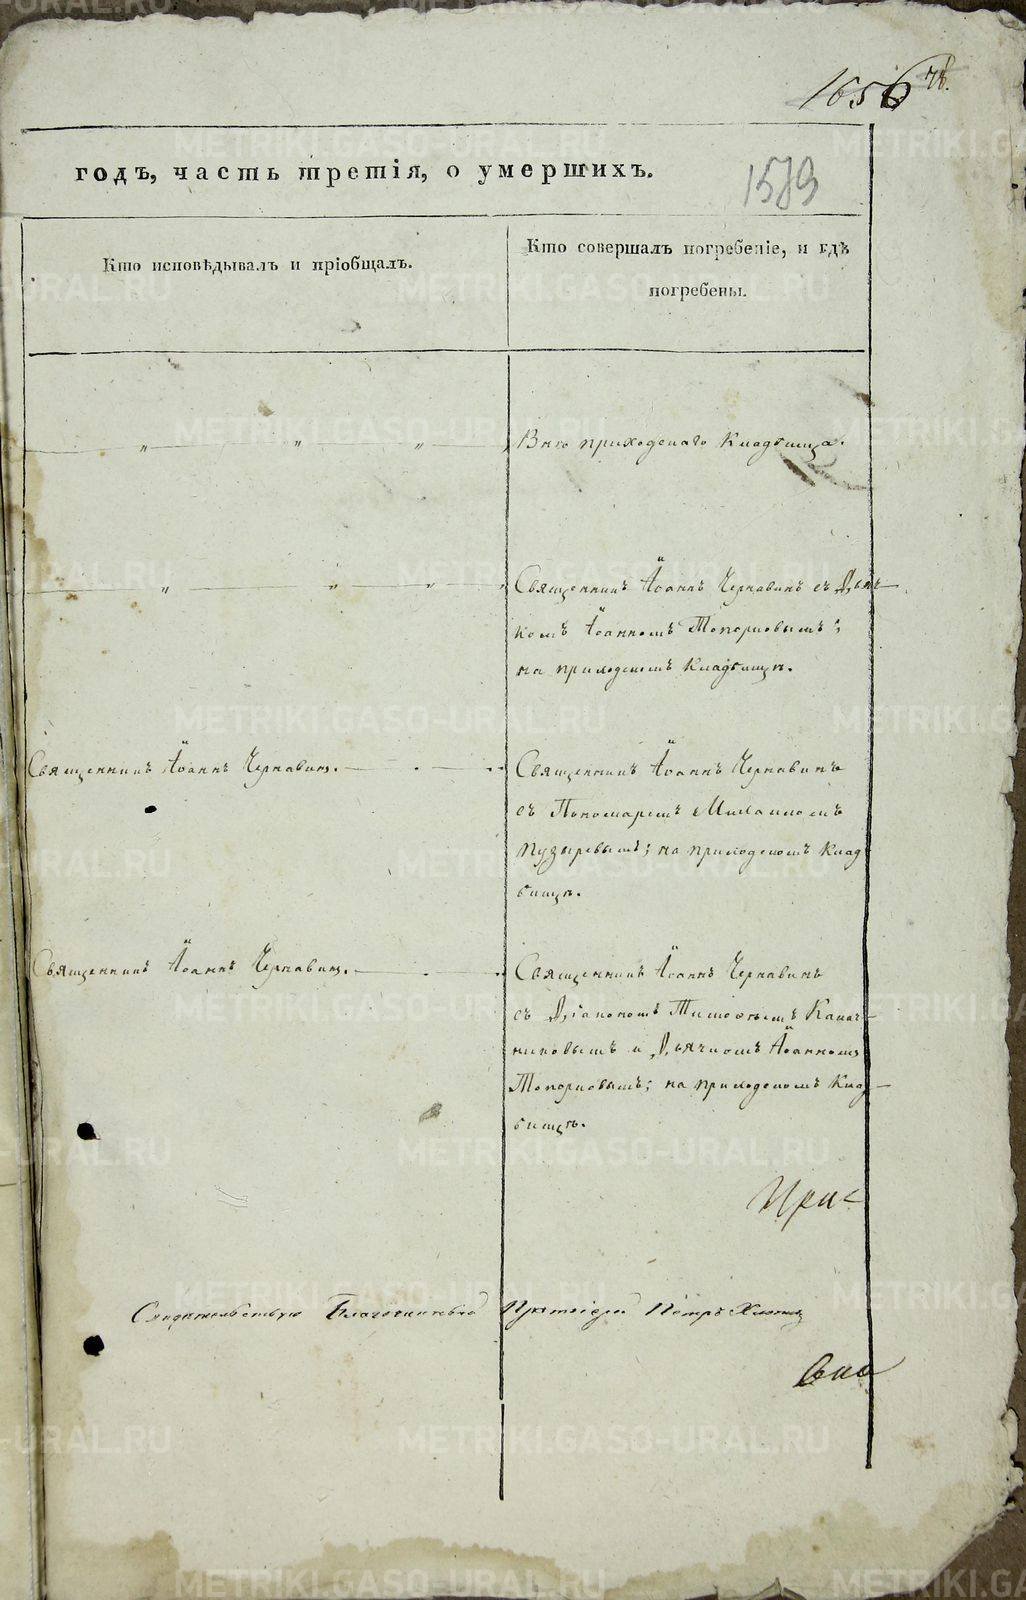 1656
годъ, часть третія, о умершихъ.
1579
Кто исповѣдывалъ и пріобщалъ.
Кто совершалъ погребеніе, и гдѣ
погребены.
Внѣ приходскаго Кладбища.
Священникъ Іоаннъ Чернавинъ съ Дьяч-
комъ Іоанномъ Топорковымъ;
на приходскомъ Кладбищѣ.
Священникъ Іоаннъ Чернавинъ.
Священникъ Іоаннъ Чернавинъ
съ Пономаремъ Михаиломъ
Пузыревымъ; на приходскомъ Клад
бищѣ.
Священникъ Іоаннъ Чернавинъ.
Священникъ Іоаннъ Чернавинъ
съ Діакономъ Тимоѳеемъ Калач-
никовымъ и Дьячкомъ Іоанномъ
Топорковымъ; на приходскомъ Клад-
бищѣ.
При=
Свидѣтельствую Благочинный Протоіерей Петръ
METRIKI.GASO-URAL.RU